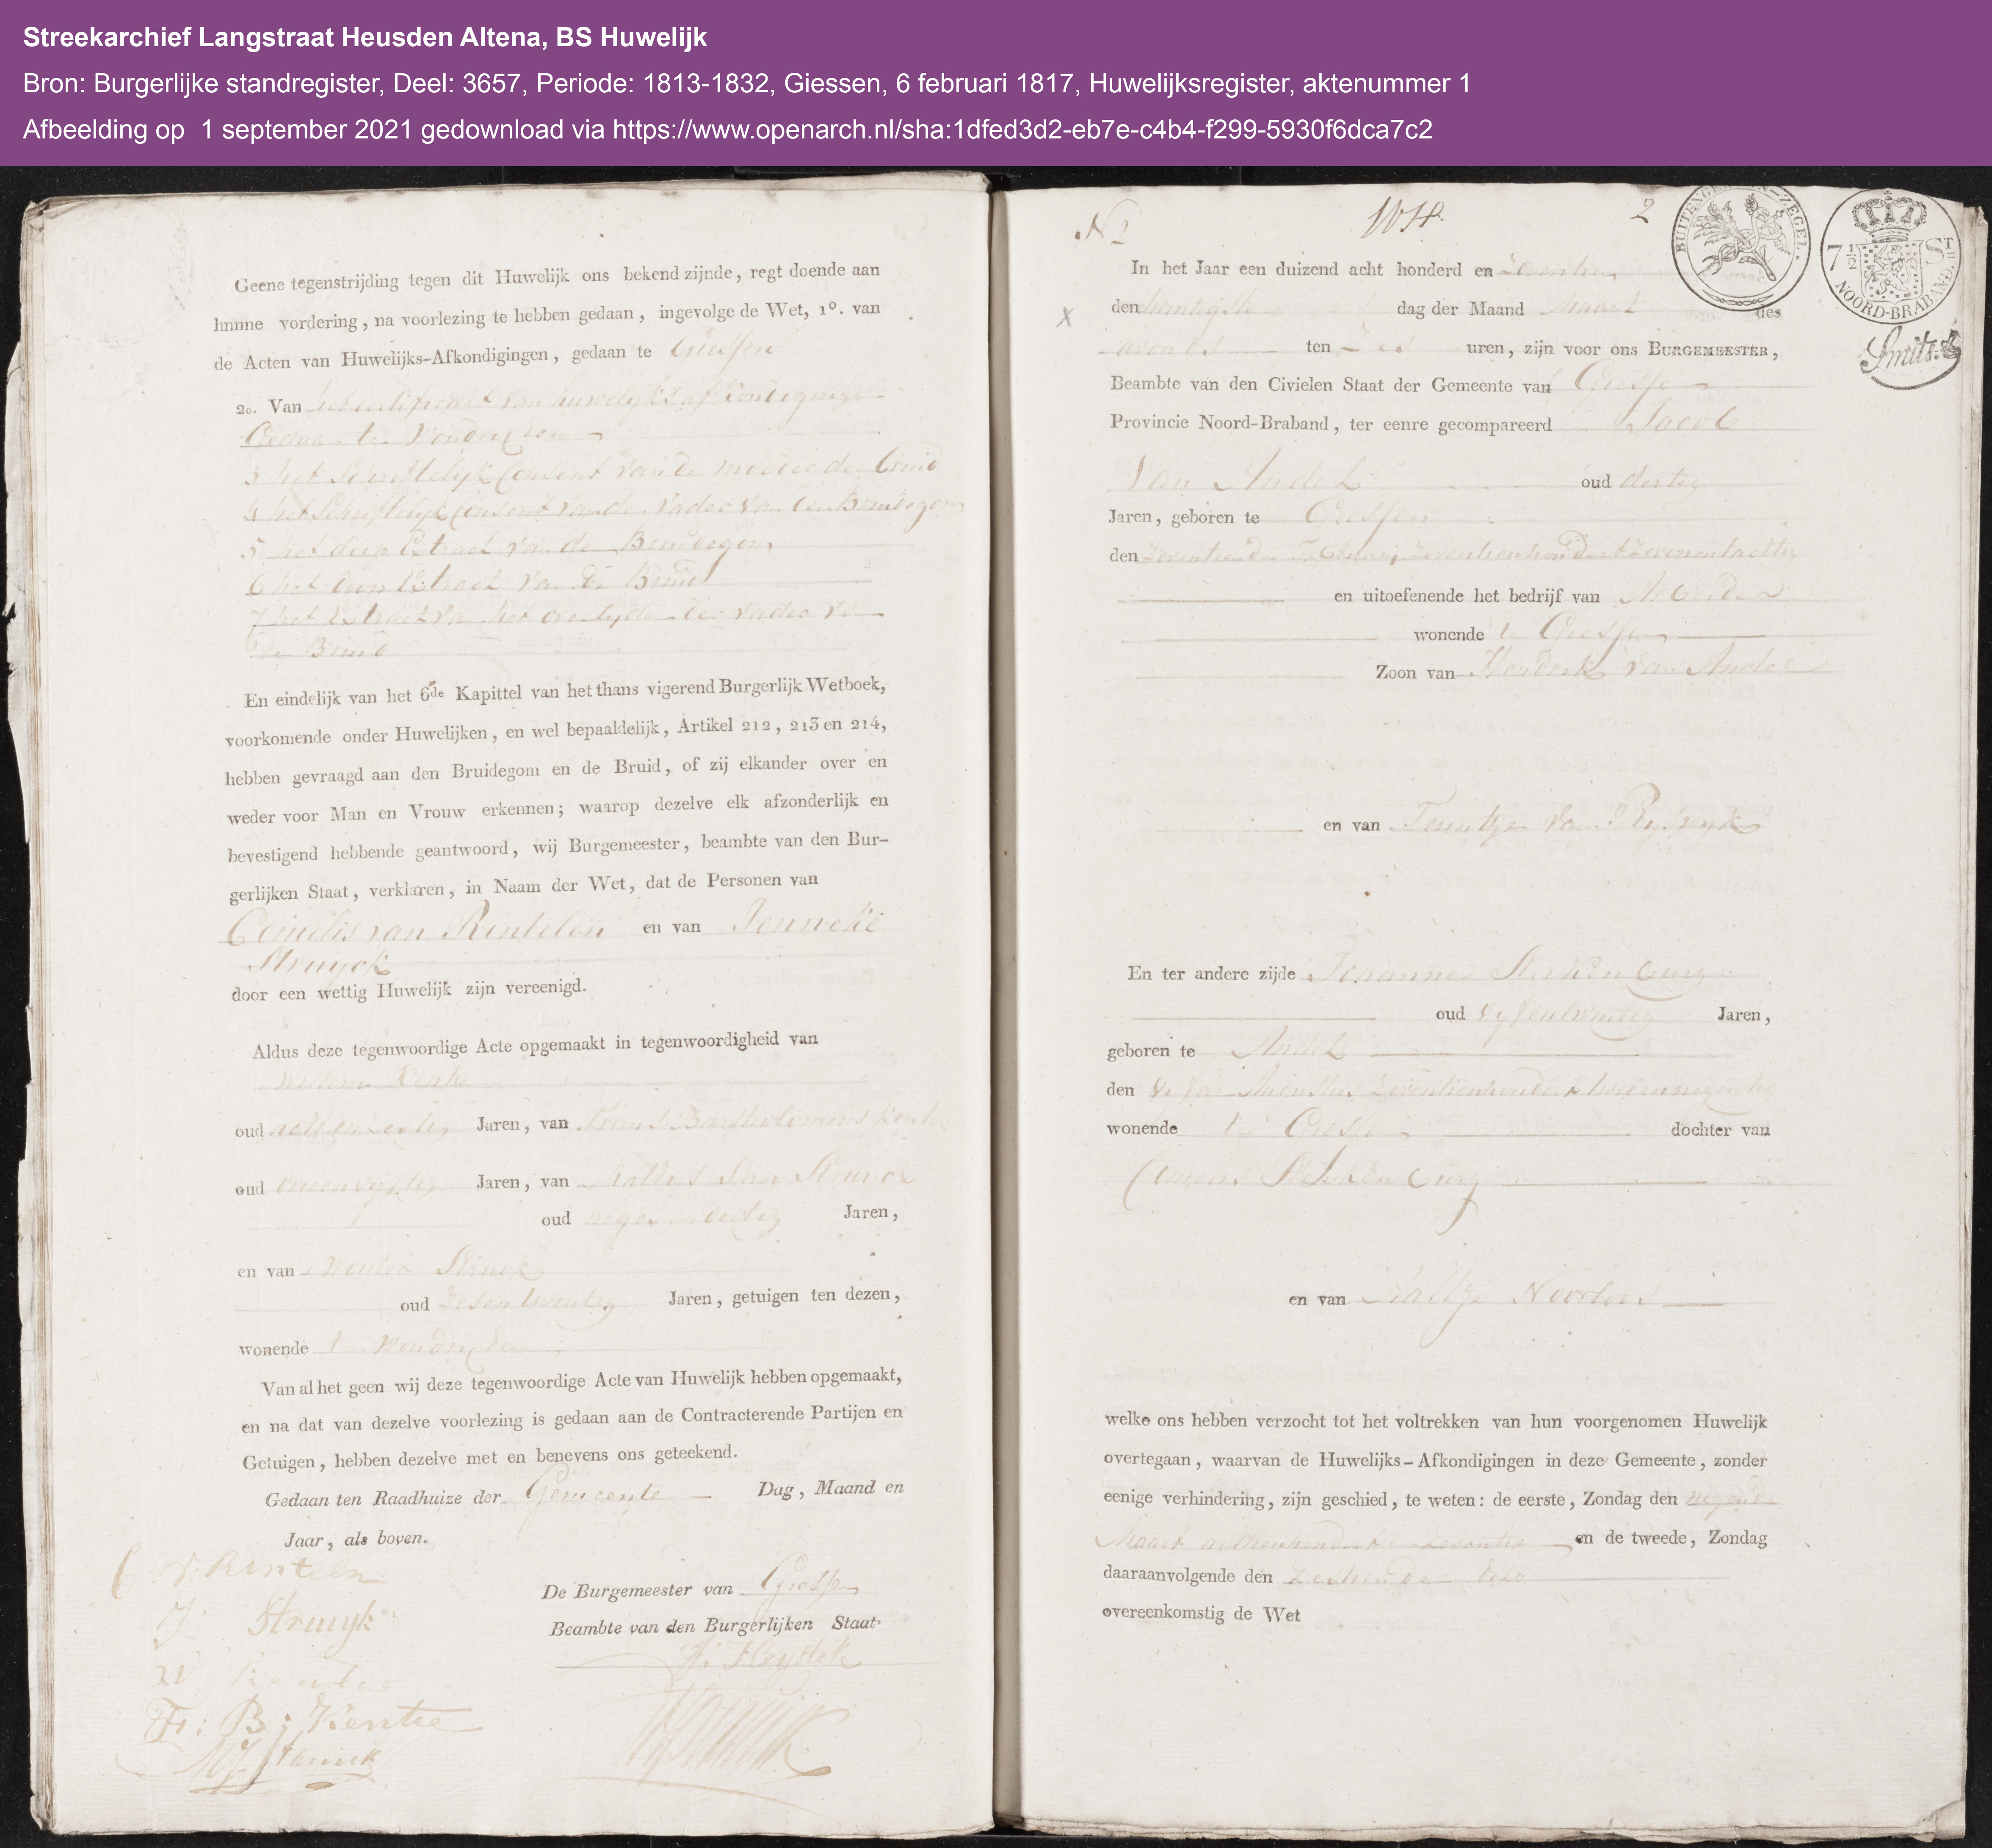 Streekarchief Langstraat Heusden Altena, BS Huwelijk
Bron: Burgerlijke standregister, Deel: 3657, Periode: 1813-1832, Giessen, 6 februari 1817, Huwelijksregister, aktenummer 1
Afbeelding op 1 september 2021 gedownload via https://www.openarch.nl/sha:1dfed3d2-eb7e-c4b4-f299-5930f6dca7c2
Geene tegenstrijding tegen dit Huwelijk ons bekend zijnde, regt doende aan
hunne vordering, na voorlezing te hebben gedaan, ingevolge de Wet, 1º. van
de Acten van Huwelijks-Afkondigingen, gedaan te Giessen
2o. Van het certificaat van huwelijks afkondiginge
Gedaan te
3 het Schriftelijk Consent van de moeder de Bruid
4 het Schriftelijk Consent van den Vader van den Bruidegom
5 het doop Extract van de Bruidegom
6 het doop Extract van de Bruid
7 het Extract van het overlyden der vader van
de Bruid
En eindelijk van het 6de Kapittel van het thans vigerend Burgerlijk Wetboek,
voorkomende onder Huwelijken, en wel bepaaldelijk, Artikel 212, 213 en 214,
hebben gevraagd aan den Bruidegom en de Bruid, of zij elkander over en
weder voor Man en Vrouw erkennen; waarop dezelve elk afzonderlijk en
bevestigend hebbende geantwoord, wij Burgemeester, beambte van den Bur-
gerlijken Staat, verklaren, in Naam der Wet, dat de Personen van
Cornelis van Rentelen en van Jenneke
Struyck
door een wettig Huwelijk zijn vereenigd.
Aldus deze tegenwoordige Acte opgemaakt in tegenwoordigheid van
Willem Kentie
oud Jaren, van Frans Bartholomeus Kentie
oud Jaren, van Struyck
oud negenendertig Jaren,
en van Wouter Struyk
oud zesentwintig Jaren, getuigen ten dezen,
wonende te
Van al het geen wij deze tegenwoordige Acte van Huwelijk hebben opgemaakt,
en na dat van dezelve voorlezing is gedaan aan de Contracterende Partijen en
Getuigen, hebben dezelve met en benevens ons geteekend.
Gedaan ten Raadhuize der Gemeente Dag, Maand en
Jaar, als boven.
C v. Renteln
De Burgemeester van Giessen
J. Struyk
Beambte van den Burgerlijken Staat
W Kentie
Fr: B: Kentie
No 2
2
BUITENGEWOON-ZEGEL.
7 1/2 ST
NOORD-BRABAND.
Smits.
In het Jaar een duizend acht honderd en Zeventien
X den twintigste dag der Maand Maart des
avonds ten Zes uren, zijn voor ons BURGEMEESTER,
Beambte van den Civielen Staat der Gemeente van Giessen
Provincie Noord-Braband, ter eenre gecompareerd Jacob
Van Andel oud dertig
Jaren, geboren te Giessen
den Zeventiende February Zeventienhonderd Zevenentachtig
en uitoefenende het bedrijf van Arbeider
wonende te Giessen
Zoon van Hendrik van Andel
en van Teuntje van Rijswyk
En ter andere zijde Johanna Sterkenburg
oud vyfentwintig Jaren,
geboren te Andel
den Zeventienhonderd
wonende te Giessen dochter van
Cornelis Sterkenburg
en van Aaltje Noorloos
welke ons hebben verzocht tot het voltrekken van hun voorgenomen Huwelijk
overtegaan, waarvan de Huwelijks-Afkondigingen in deze Gemeente, zonder
eenige verhindering, zijn geschied, te weten: de eerste, Zondag den negende
Maart achttienhonderd en zeventien en de tweede, Zondag
daaraanvolgende den Zestiende
overeenkomstig de Wet